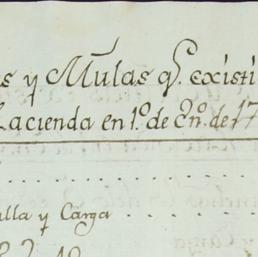 s y Mulas q.^e existi
acienda en 1.^o de En.^o de 17
lla y Carga